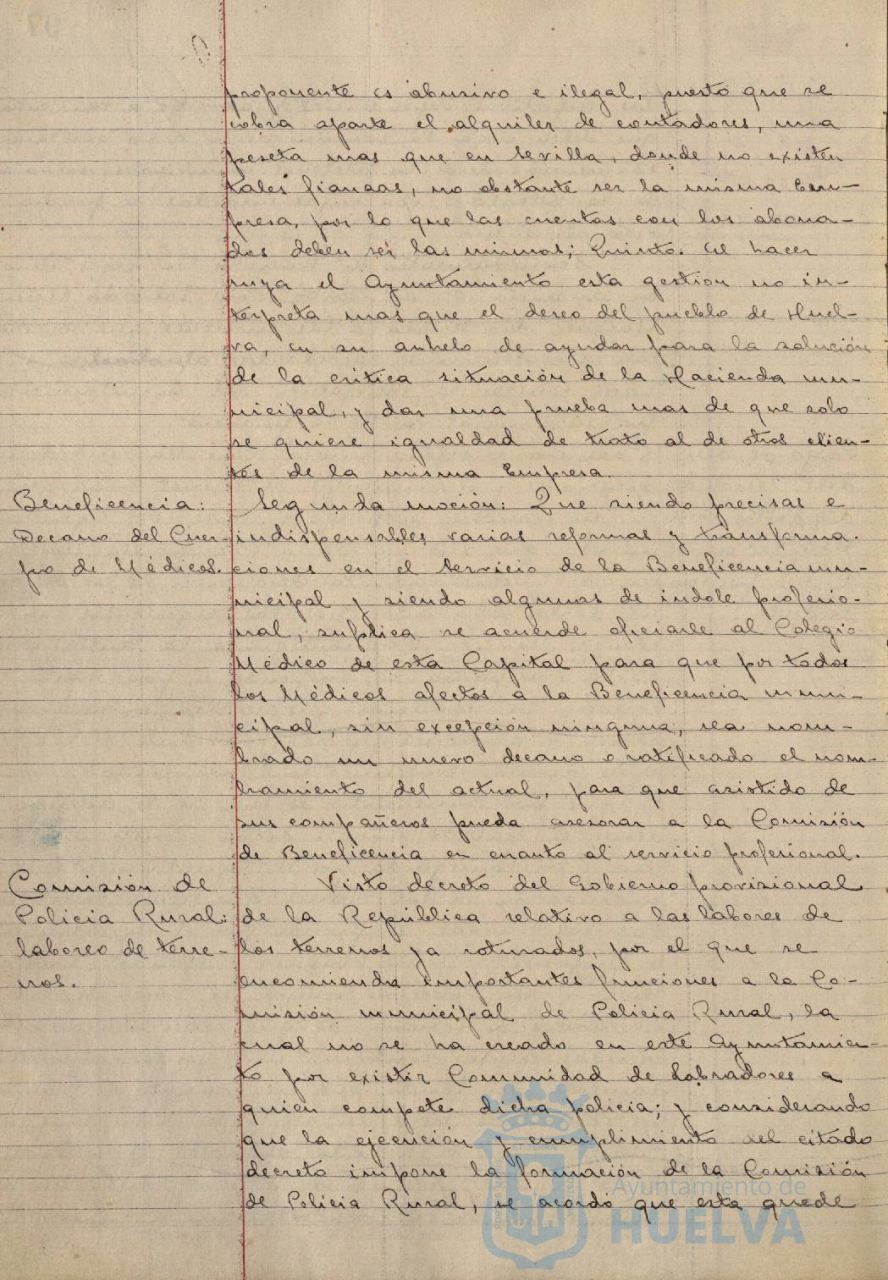 proponente es abusivo e ilegal, puesto que se
cobra aparte el alquiler de contadores, una
peseta mas que en Sevilla, donde no existen
tales fianzas, no obstante ser la misma Em-
presa, por lo que las cuentas con los abona-
dos deben ser las mismas; Quinto. Al hacer
suya el Ayuntamiento esta gestion no in-
terpreta mas que el deseo del pueblo de Huel-
va, en su anhelo de ayudar para la solución
de la crítica situación de la Hacienda mu-
nicipal, y dar una prueba mas de que solo
se quiere igualdad de trato al de otros clien-
tes de la misma Empresa.
Beneficencia:
Decano del Cuer-
po de Médicos.
Segunda moción: Que siendo precisas e
indispensables varias reformas y transforma-
ciones en el Servicio de la Beneficencia mu-
nicipal y siendo algunas de indole profesio-
nal, suplica se acuerde oficiarle al Colegio
Médico de esta Capital para que por todos
los Médicos afectos a la Beneficencia muni-
cipal, sin excepción ninguna, sea nom-
brado un nuevo decano o ratificado el nom-
bramiento del actual, para que asistido de
sus compañeros pueda asesorar a la Comisión
de Beneficencia en cuanto al servicio profesional.
Comisión de
Policia Rural:
laboreo de terre-
nos.
Visto decreto del Gobierno provisional
de la República relativo a las labores de
los terrenos ya roturados, por el que se
encomienda importantes funciones a la Co-
misión municipal de Policia Rural, la
cual no se ha creado en este Ayuntamien-
to por existir Comunidad de Labradores a
quien compete dicha policia; y considerando
que la ejecución y cumplimiento del citado
decreto impone la formación de la Comisión
de Policia Rural, se acordó que esta quede
Ayuntamiento de
HUELVA